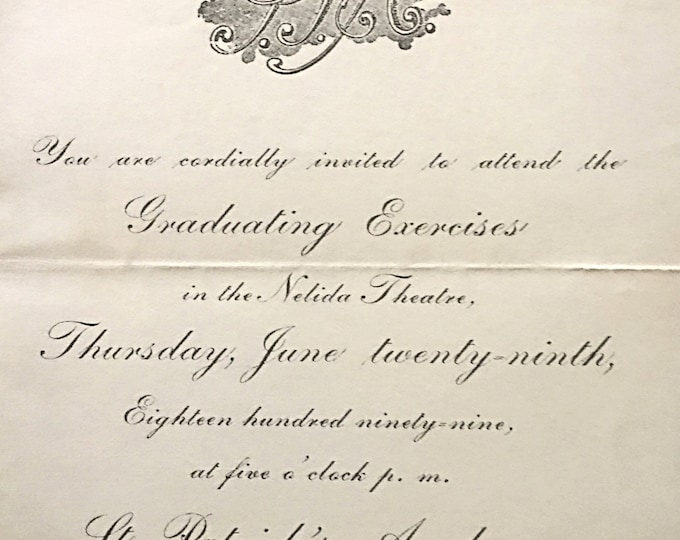 You are cordially invited to attend the
Graduating Exercises
in the Nelida Theatre,
Thursday, June twenty-ninth,
Eighteen hundred ninety-nine,
at five o'clock p. m.
St. Patrick's